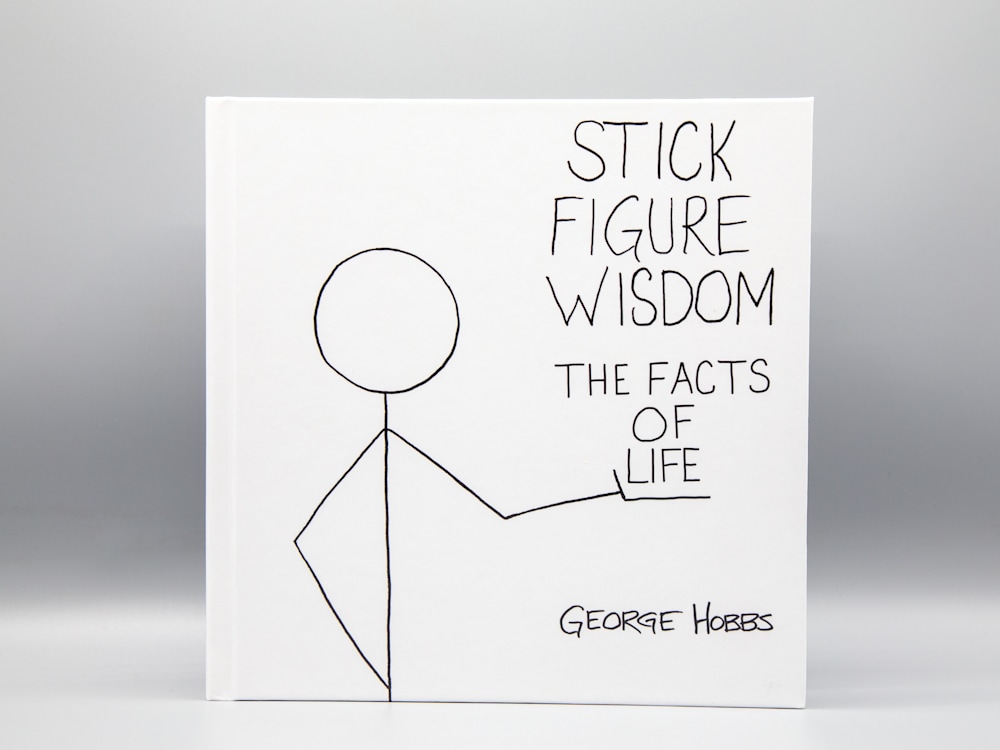 STICK
FIGURE
WISDOM
THE FACTS
OF
LIFE
GEORGE HOBBS